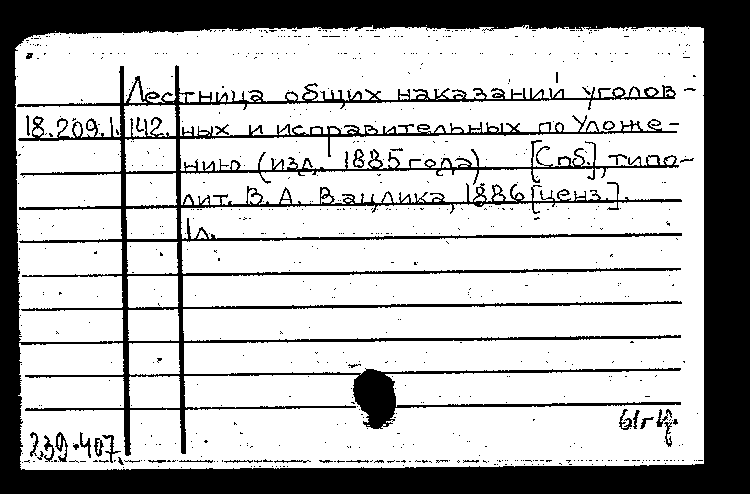 Лестница общих наказаний уголов-
18.209.1.142. ных и исправительных по Уложе-
нию (изд. 1885 года) [Спб.], типо-
лит. В. А. Вацлика, 1886 [ценз.].
1л.
239-407.